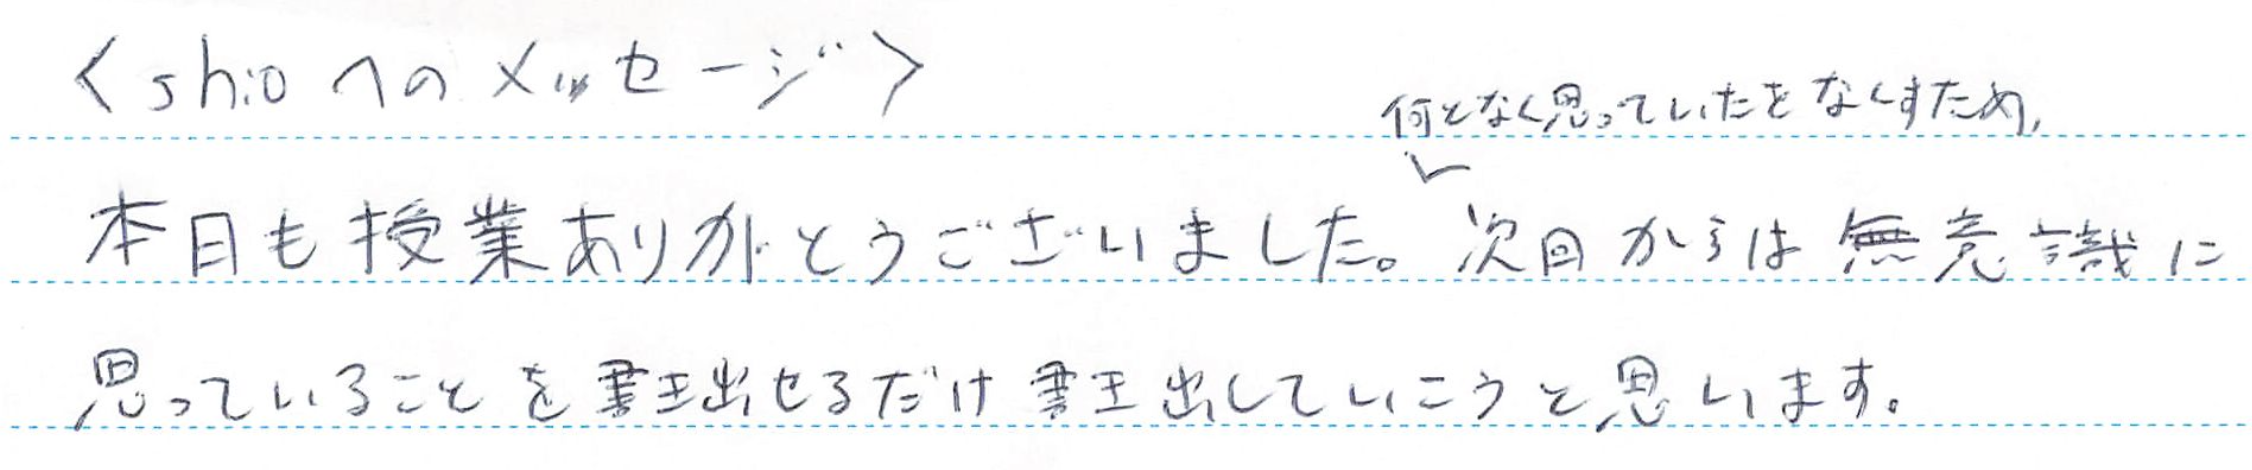 〈shioへのメッセージ〉
何となく思っていたをなくすため,
本日も授業ありがとうございました。次回からは無意識に
思っていることを書き出せるだけ書き出していこうと思います。